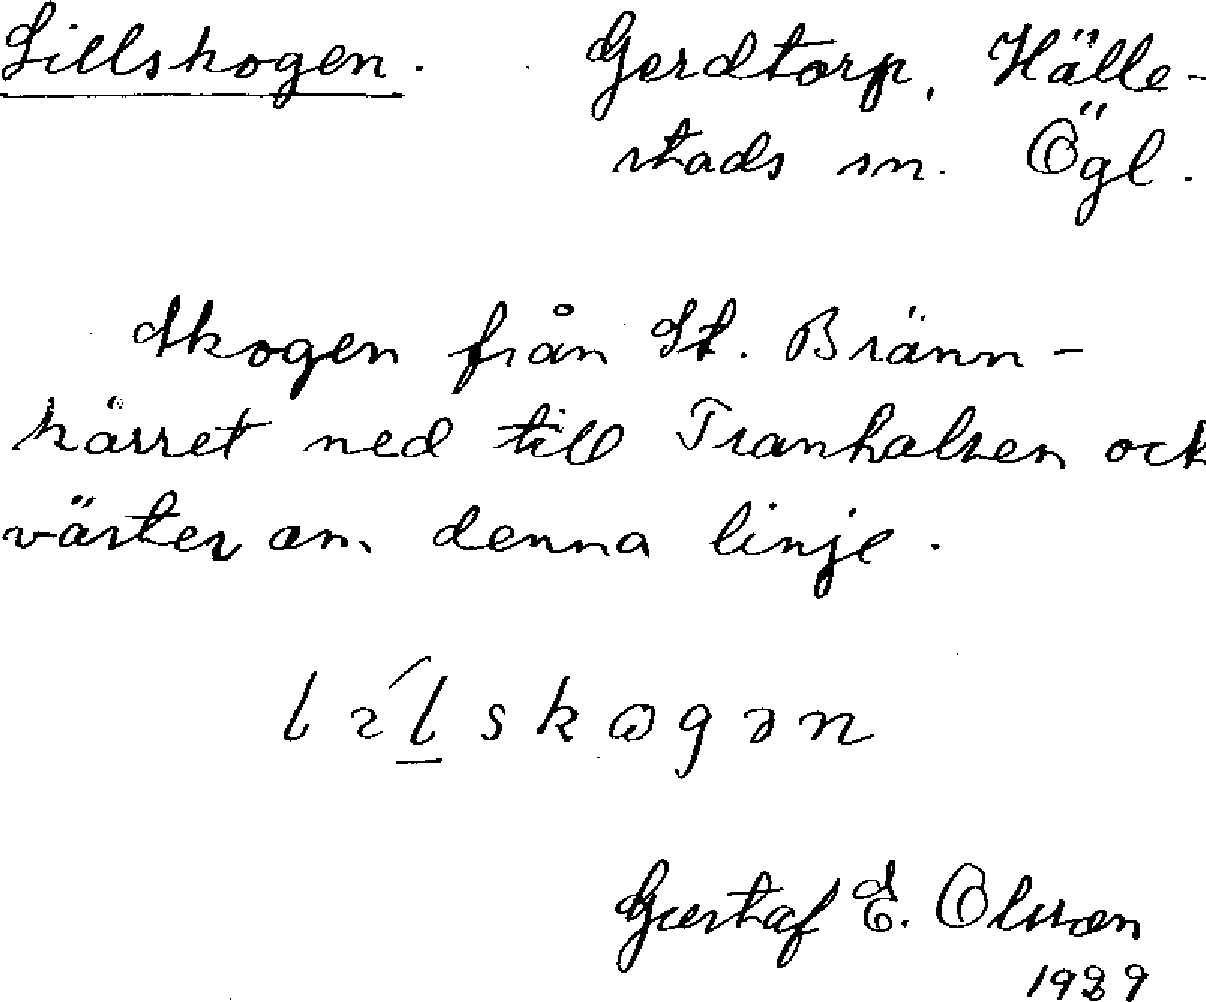 Lillskogen. Gerdtorp, Hälle-
stads sn. Ögl.
Skogen från St. Bränn-
kärret ned till Tranhalsen ock
väster om denna linje.
Gustaf E. Olsson
1929